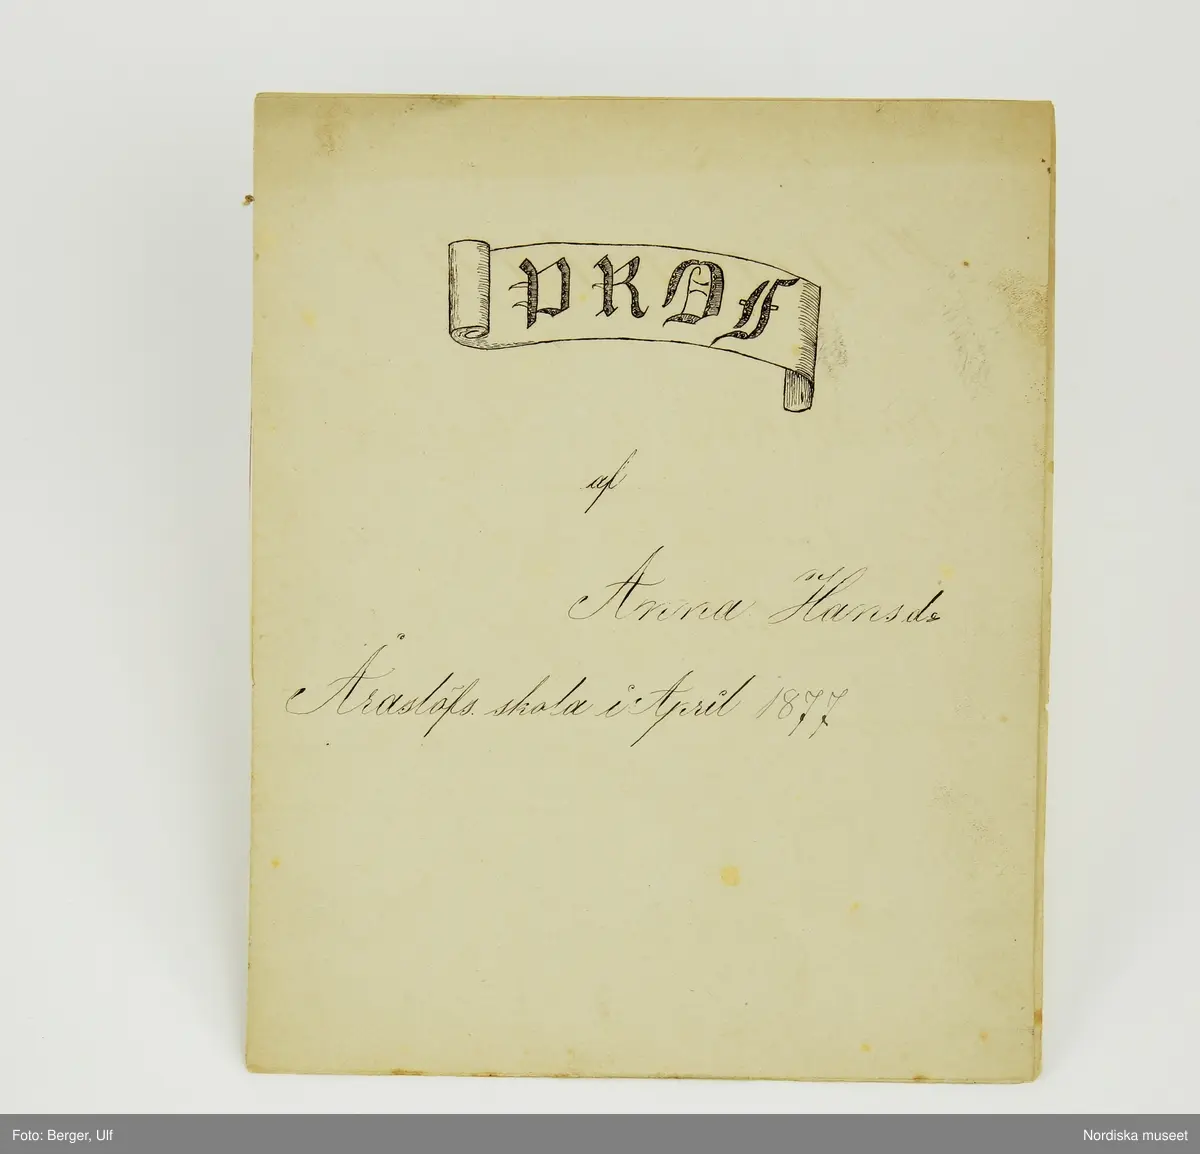 PROF
af
Anna Hansd:
Åraslöfs skola i April 1877
Foto: Berger, Ulf
Nordiska museet